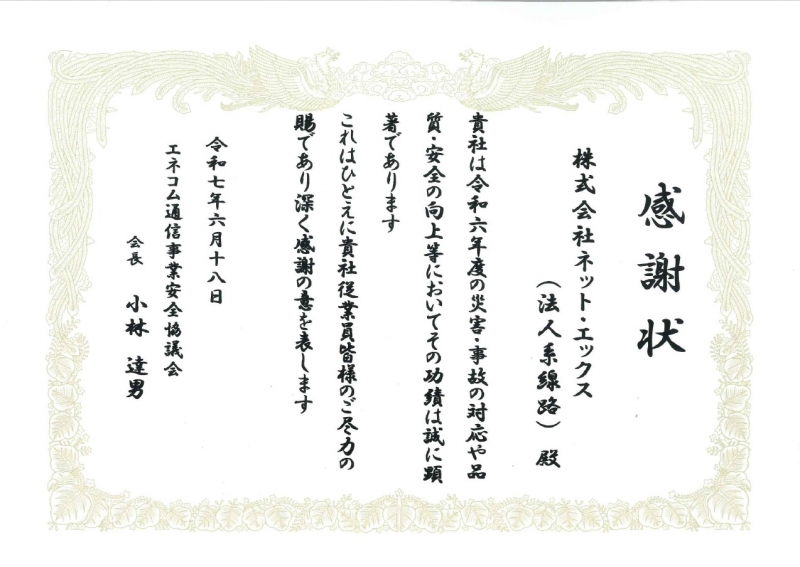 感謝状
株式会社ネット・エックス
（法人系線路）殿
貴社は令和六年度の災害・事故の対応や品
質・安全の向上等においてその功績は誠に顕
著であります
これはひとえに貴社従業員皆様のご尽力の
賜であり深く感謝の意を表します
令和七年六月十八日
エネコム通信事業安全協議会
会長 小林 達男